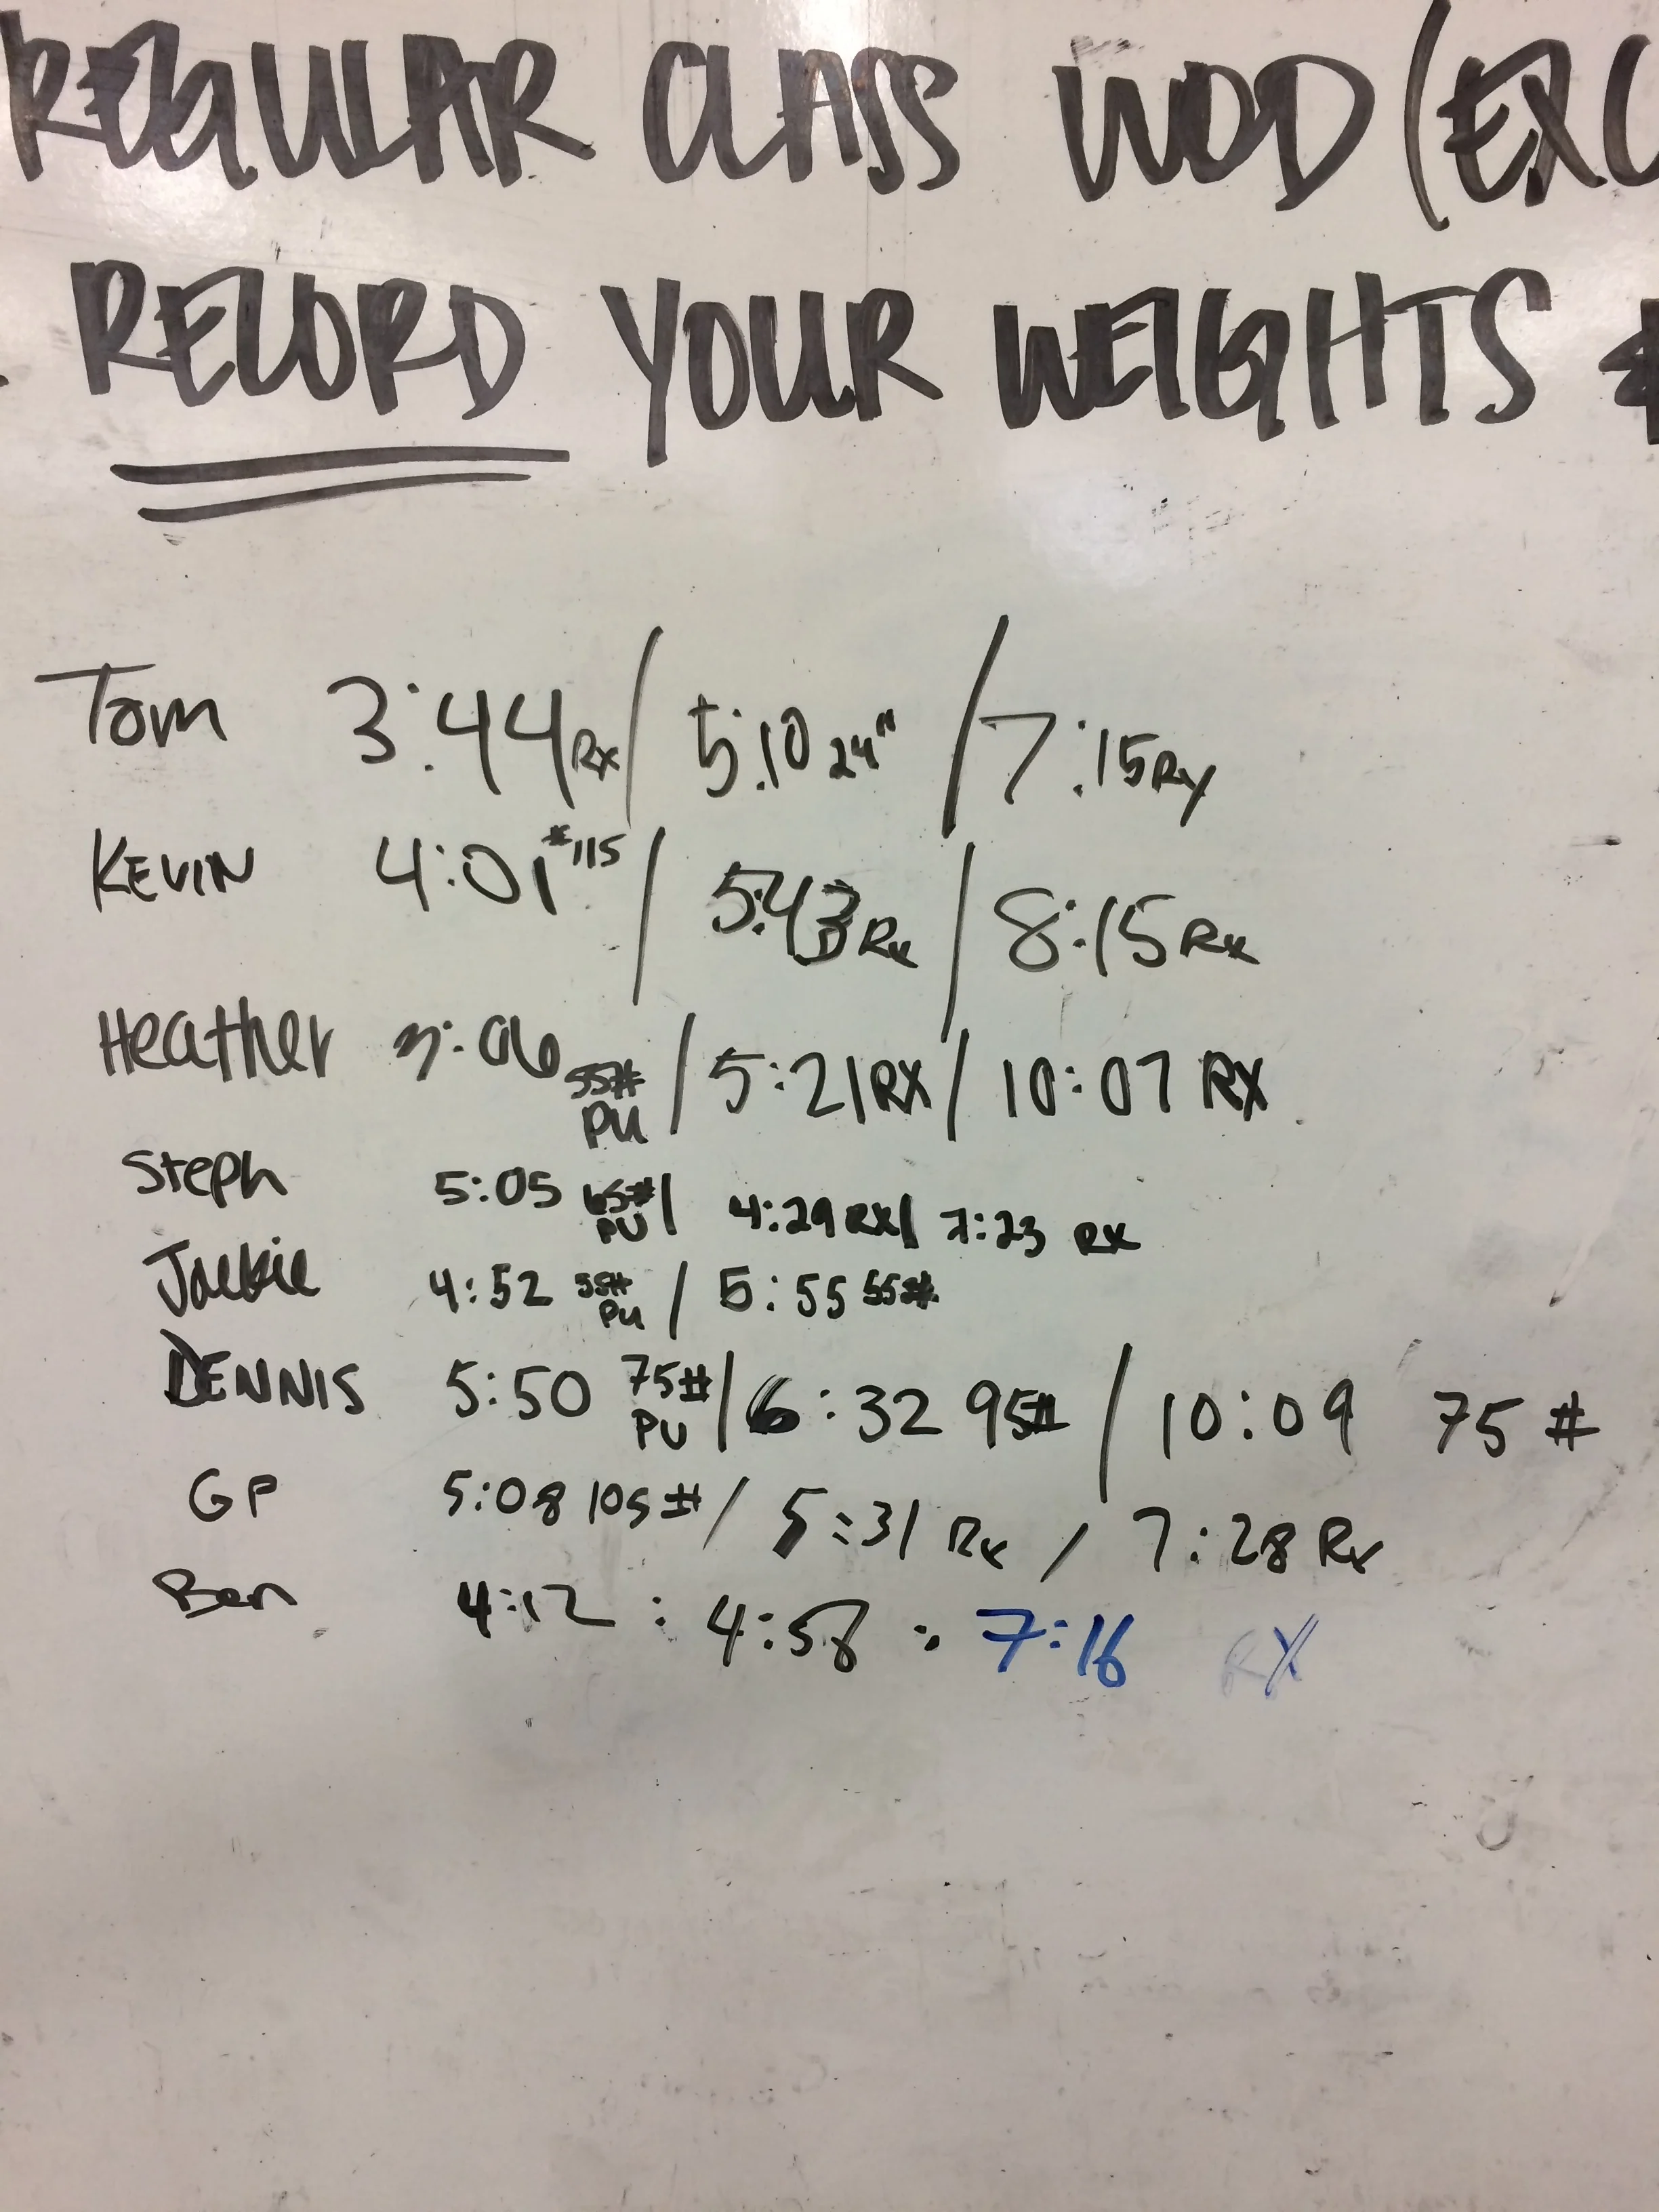 REGULAR CLASS WOD (EXC
RECORD YOUR WEIGHTS *
Tom 3:44 Rx / 5:10 24" / 7:15 Rx
KEVIN 4:01 #115 / 5:43 Rx / 8:15 Rx
Heather 3:06 55# PU / 5:21 RX / 10:07 RX
Steph 5:05 65# PU / 4:29 RX / 7:23 RX
Jackie 4:52 55# PU / 5:55 55#
DENNIS 5:50 75# PU / 6:32 95# / 10:09 75 #
GP 5:08 105 # / 5:31 Rx / 7:28 Rx
Ben 4:12 : 4:58 : 7:16 RX